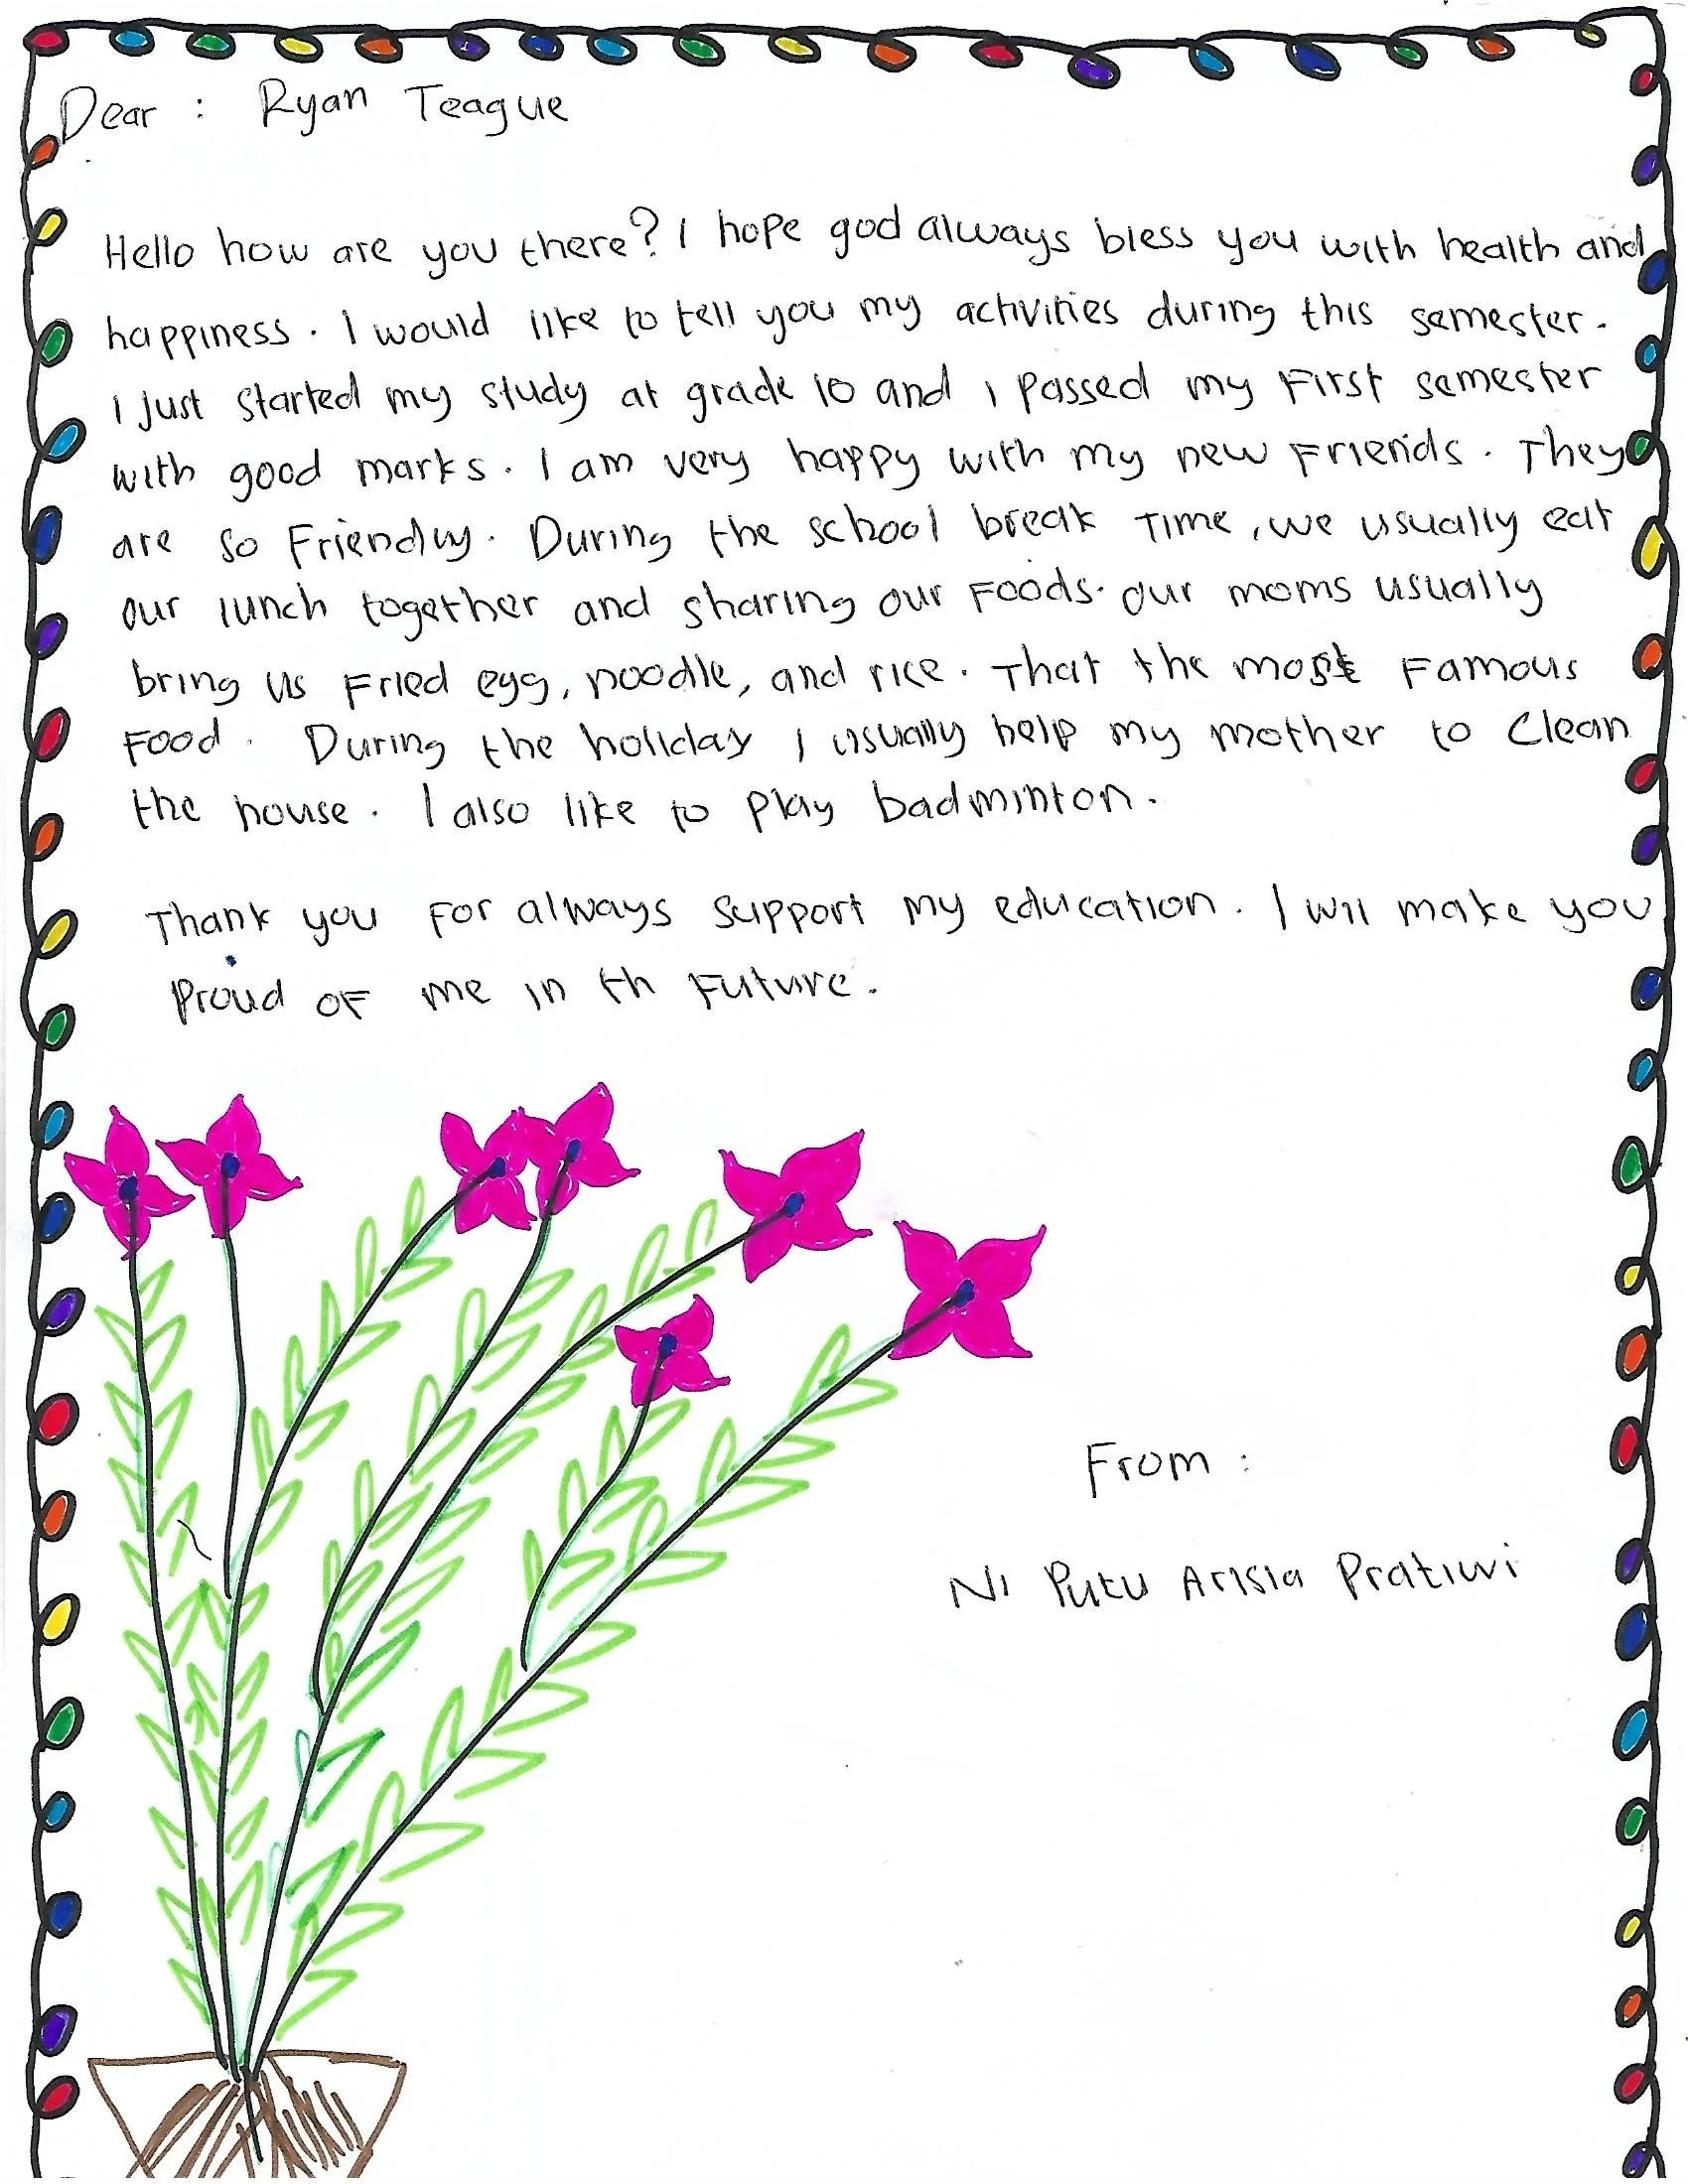 Dear : Ryan Teague
Hello how are you there? I hope god always bless you with health and
happiness. I would like to tell you my activities during this semester.
I just started my study at grade 10 and i passed my First semester
with good marks. I am very happy with my new Friends. They
are so Friendly. During the school break Time, we usually eat
our lunch together and sharing our Foods. our moms usually
bring us Fried egg, noodle, and rice. That the most Famous
Food. During the holiday I usually help my mother to Clean
the house. I also like to Play badminton.
Thank you For always support my education. I will make you
Proud OF me in th Future.
From :
Ni Putu Arisia Pratiwi